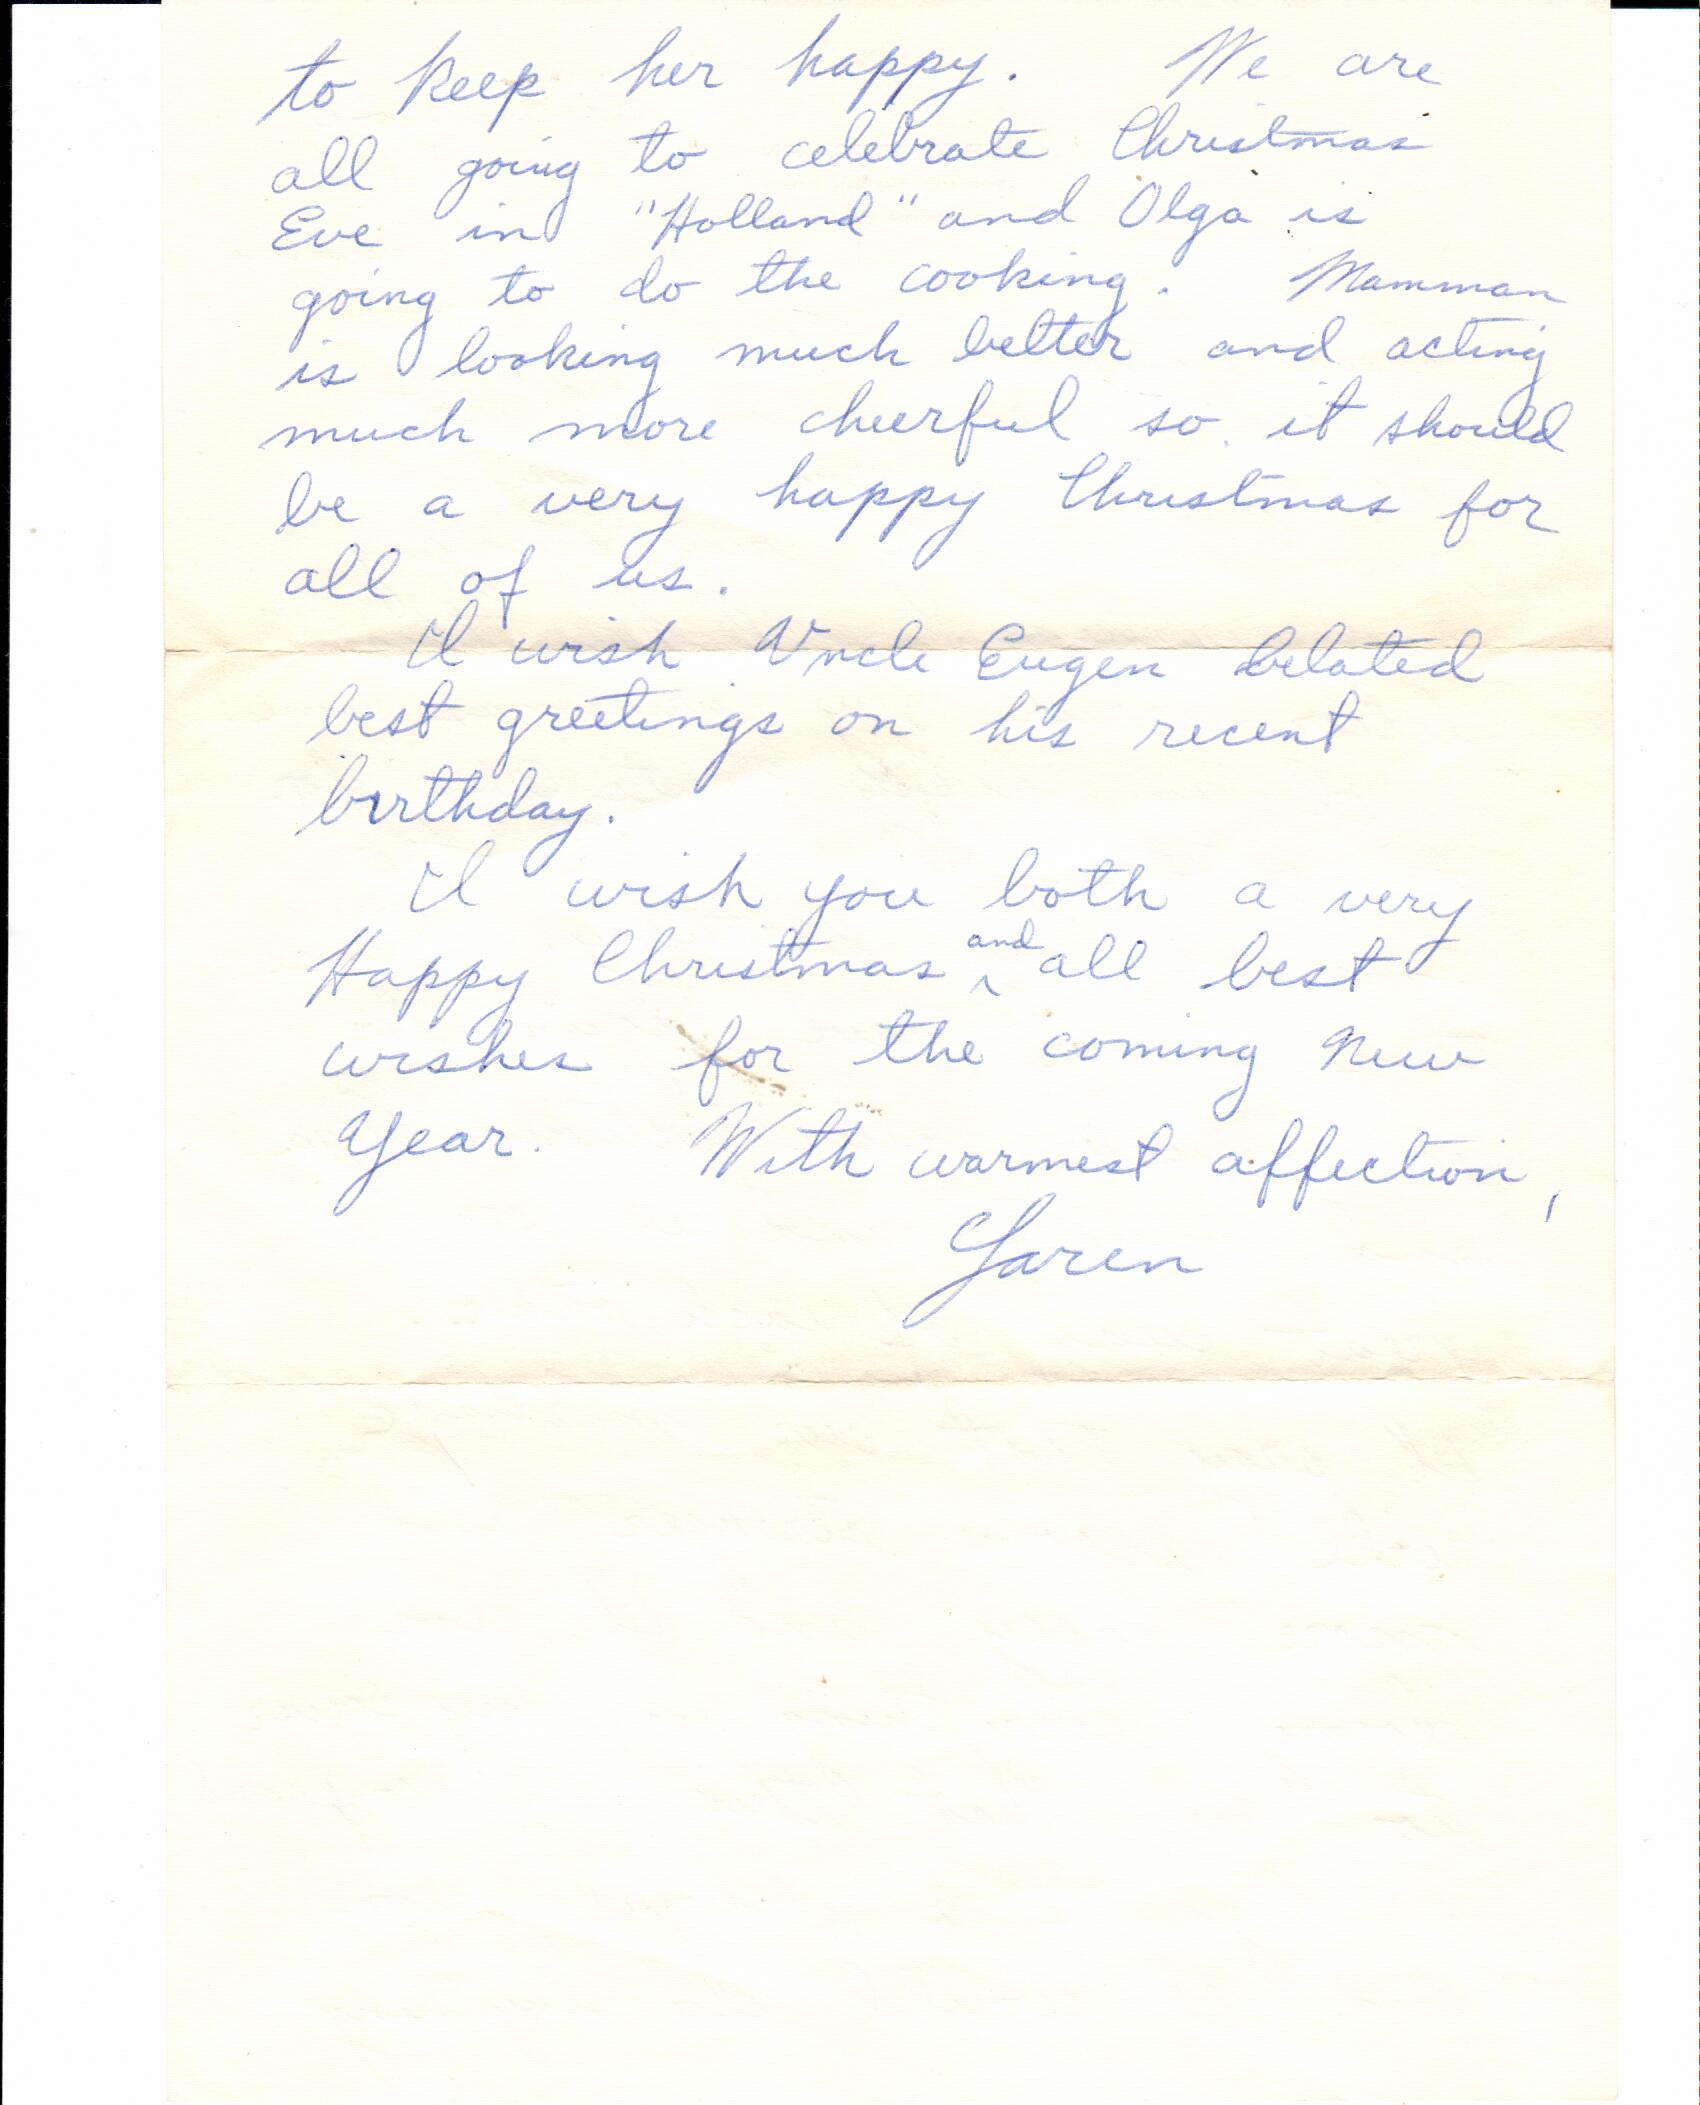 to keep her happy. We are
all going to celebrate Christmas
Eve in "Holland" and Olga is
going to do the cooking. Mamman
is looking much better and acting
much more cheerful so it should
be a very happy Christmas for
all of us.
I wish Uncle Eugen belated
best greetings on his recent
birthday.
I wish you both a very
Happy Christmas and all best
wishes for the coming New
Year. With warmest affection,
Laren